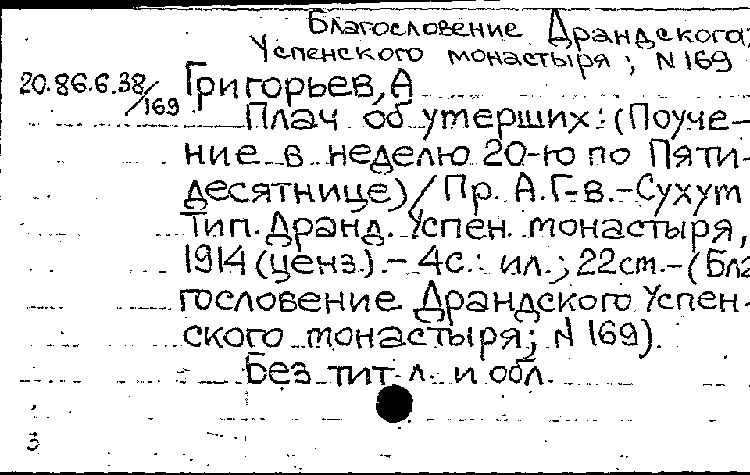 Благословение Драндского
Успенского монастыря ; N 169
20.86.6.38/
/169
Григорьев, А
Плач об утерших: (Поуче-
ние в неделю 20-ю по Пяти-
десятнице) / Пр. А. Г-в. - Сухут
Тип. Дранд. Успен. монастыря,
1914 (ценз.). - 4с.: ил.; 22 см. - (Бла
гословение Драндского Успен-
ского монастыря; N 169).
Без тит. л. и обл.
3